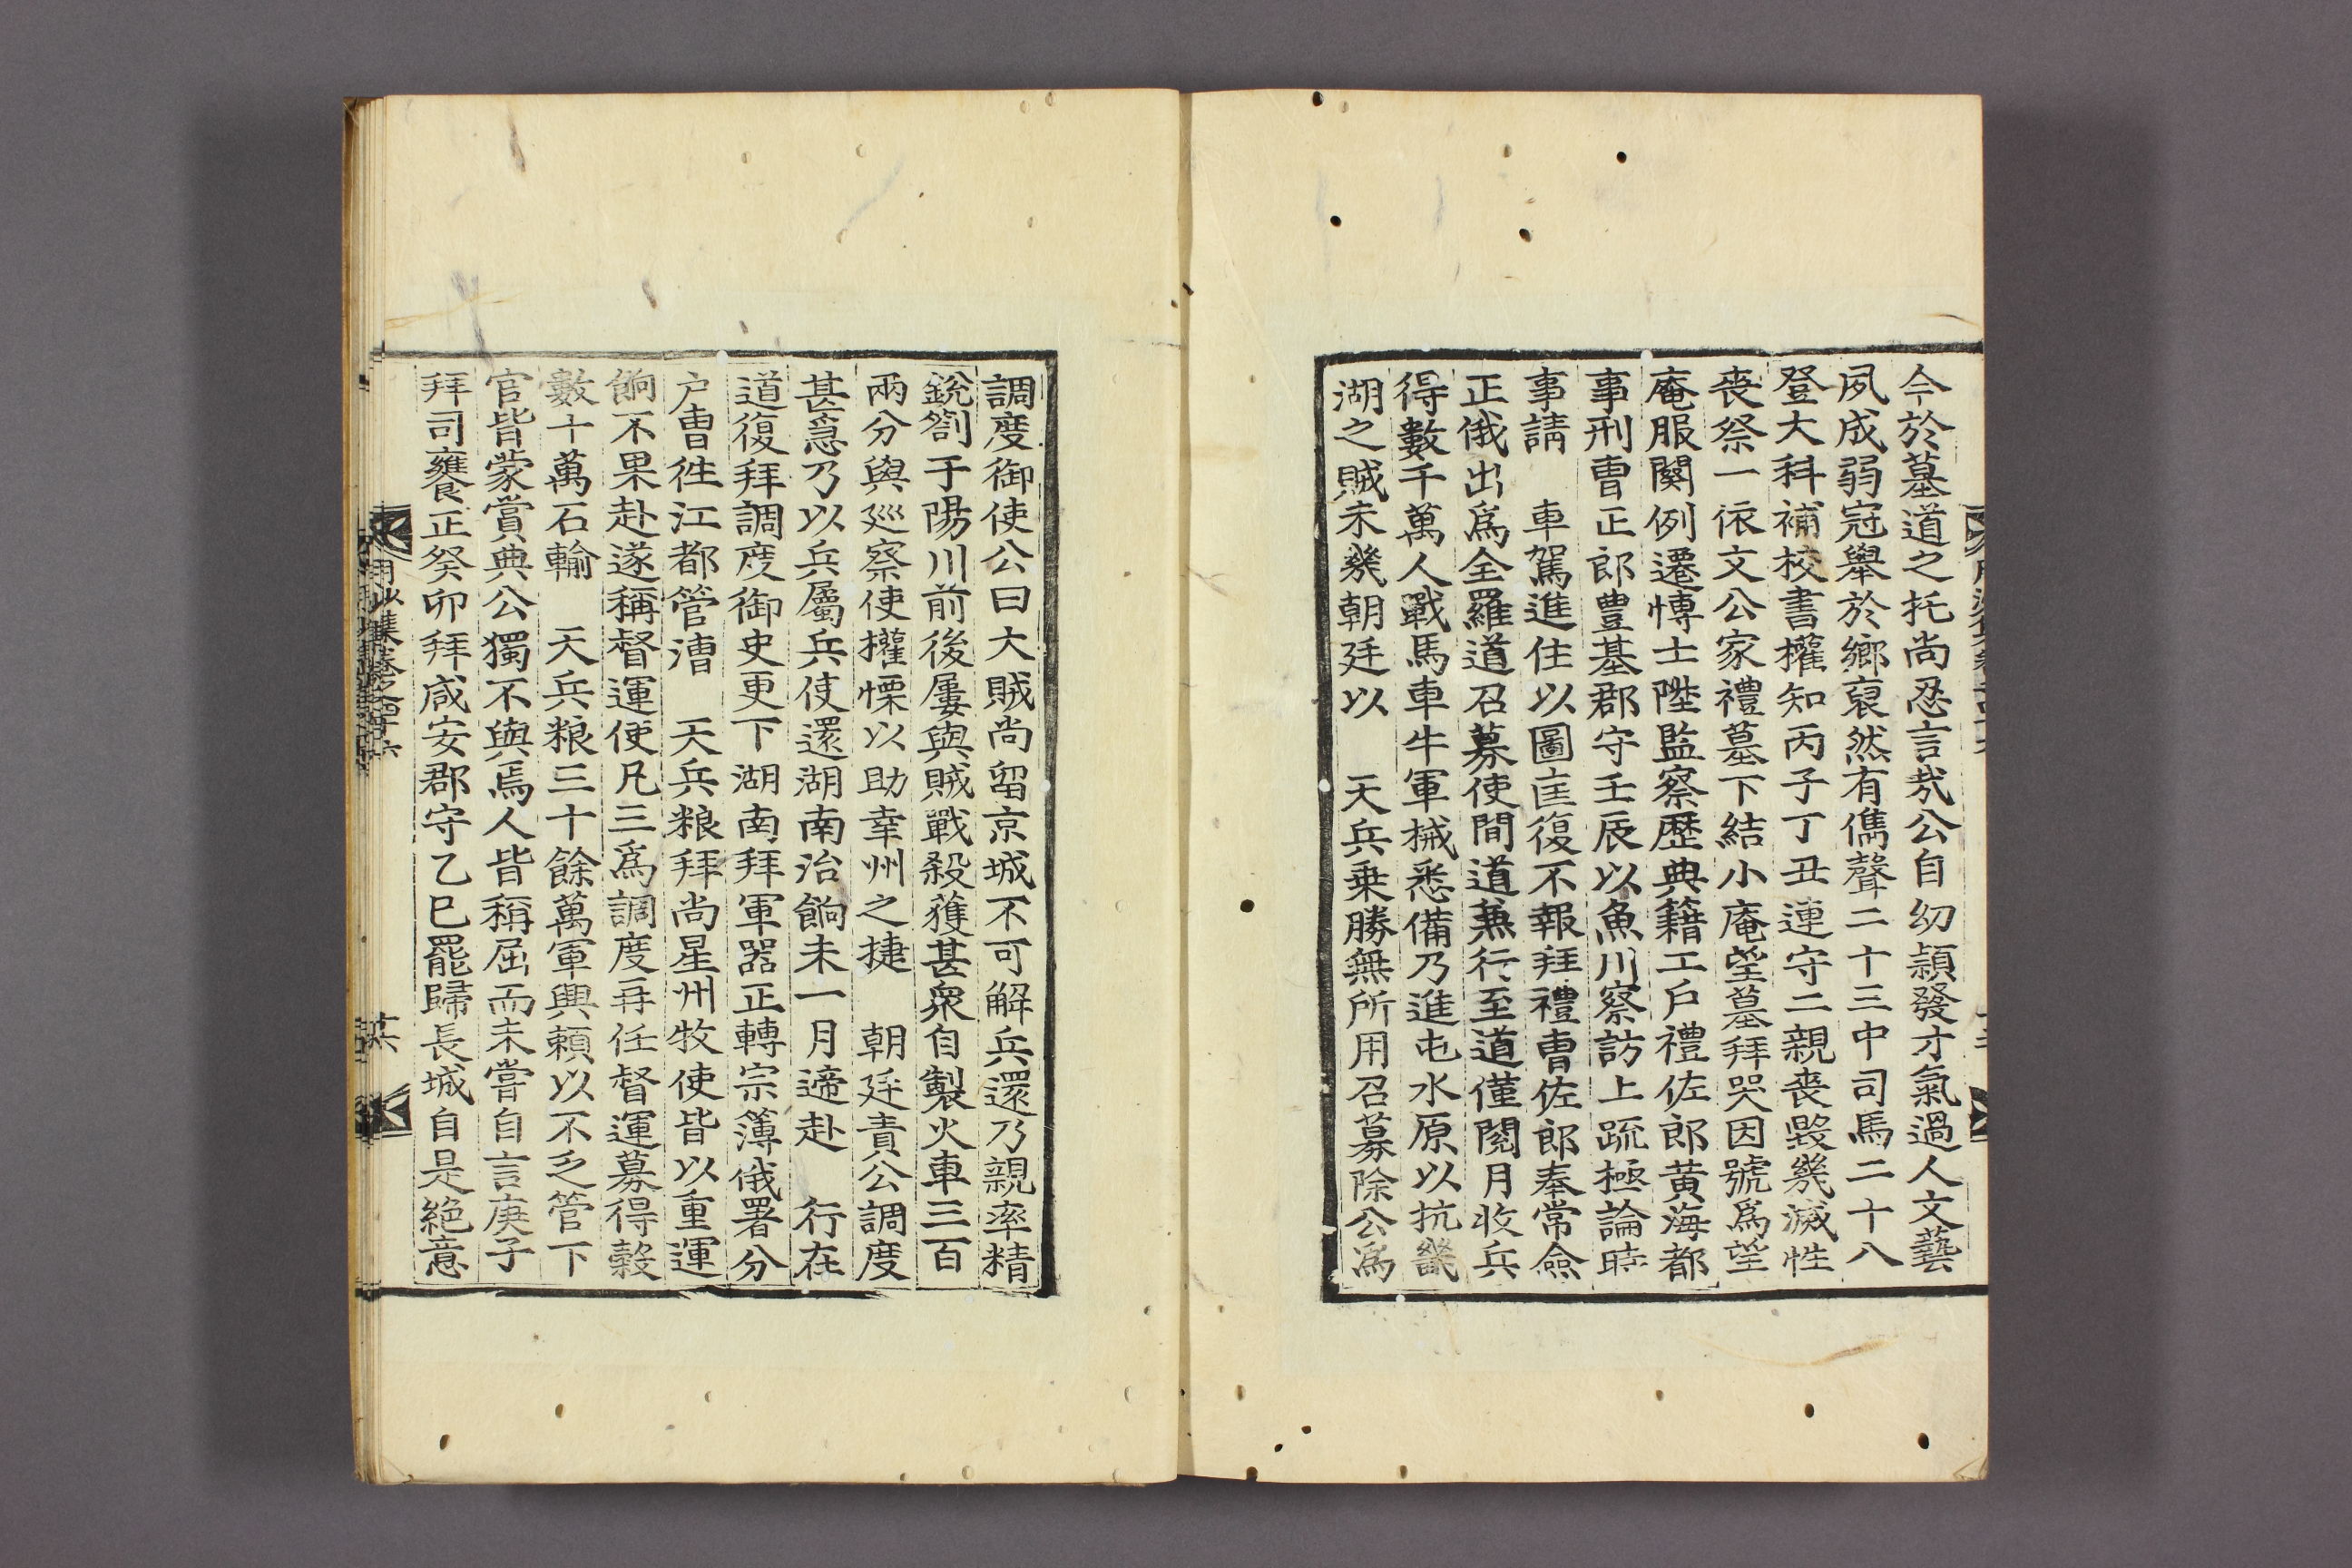 今於墓道之托尚忍言㢤公自幼頴發才氣過人文藝
夙成弱冠舉於鄉裒然有儁聲二十三中司馬二十八
登大科補校書權知丙子丁丑連守二親喪毀幾滅性
喪祭一依文公家禮墓下結小庵望墓拜哭因號爲望
庵服闋例遷博士陞監察歷典籍工戶禮佐郎黃海都
事刑曹正郎豊基郡守壬辰以魚川察訪上疏極論時
事請　車駕進住以圖匡復不報拜禮曹佐郎奉常僉
正俄出爲全羅道召募使間道兼行至道僅閱月收兵
得數千萬人戰馬車牛軍械悉備乃進屯水原以抗畿
湖之賊未幾朝廷以　天兵乗勝無所用召募除公爲
調度御使公曰大賊尚留京城不可解兵還乃親率精
銳劄于陽川前後屢與賊戰殺獲甚衆自製火車三百
兩分與廵察使權慄以助幸州之捷　朝廷責公調度
甚急乃以兵屬兵使還湖南治餉未一月遞赴　行在
道復拜調度御史更下湖南拜軍器正轉宗簿俄署分
户曹徃江都管漕　天兵粮拜尚星州牧使皆以重運
餉不果赴遂稱督運使凡三爲調度再任督運募得穀
數十萬石輸　天兵粮三十餘萬軍興賴以不乏管下
官皆蒙賞典公獨不與焉人皆稱屈而未嘗自言庚子
拜司饔正癸卯拜咸安郡守乙巳罷歸長城自是絶意